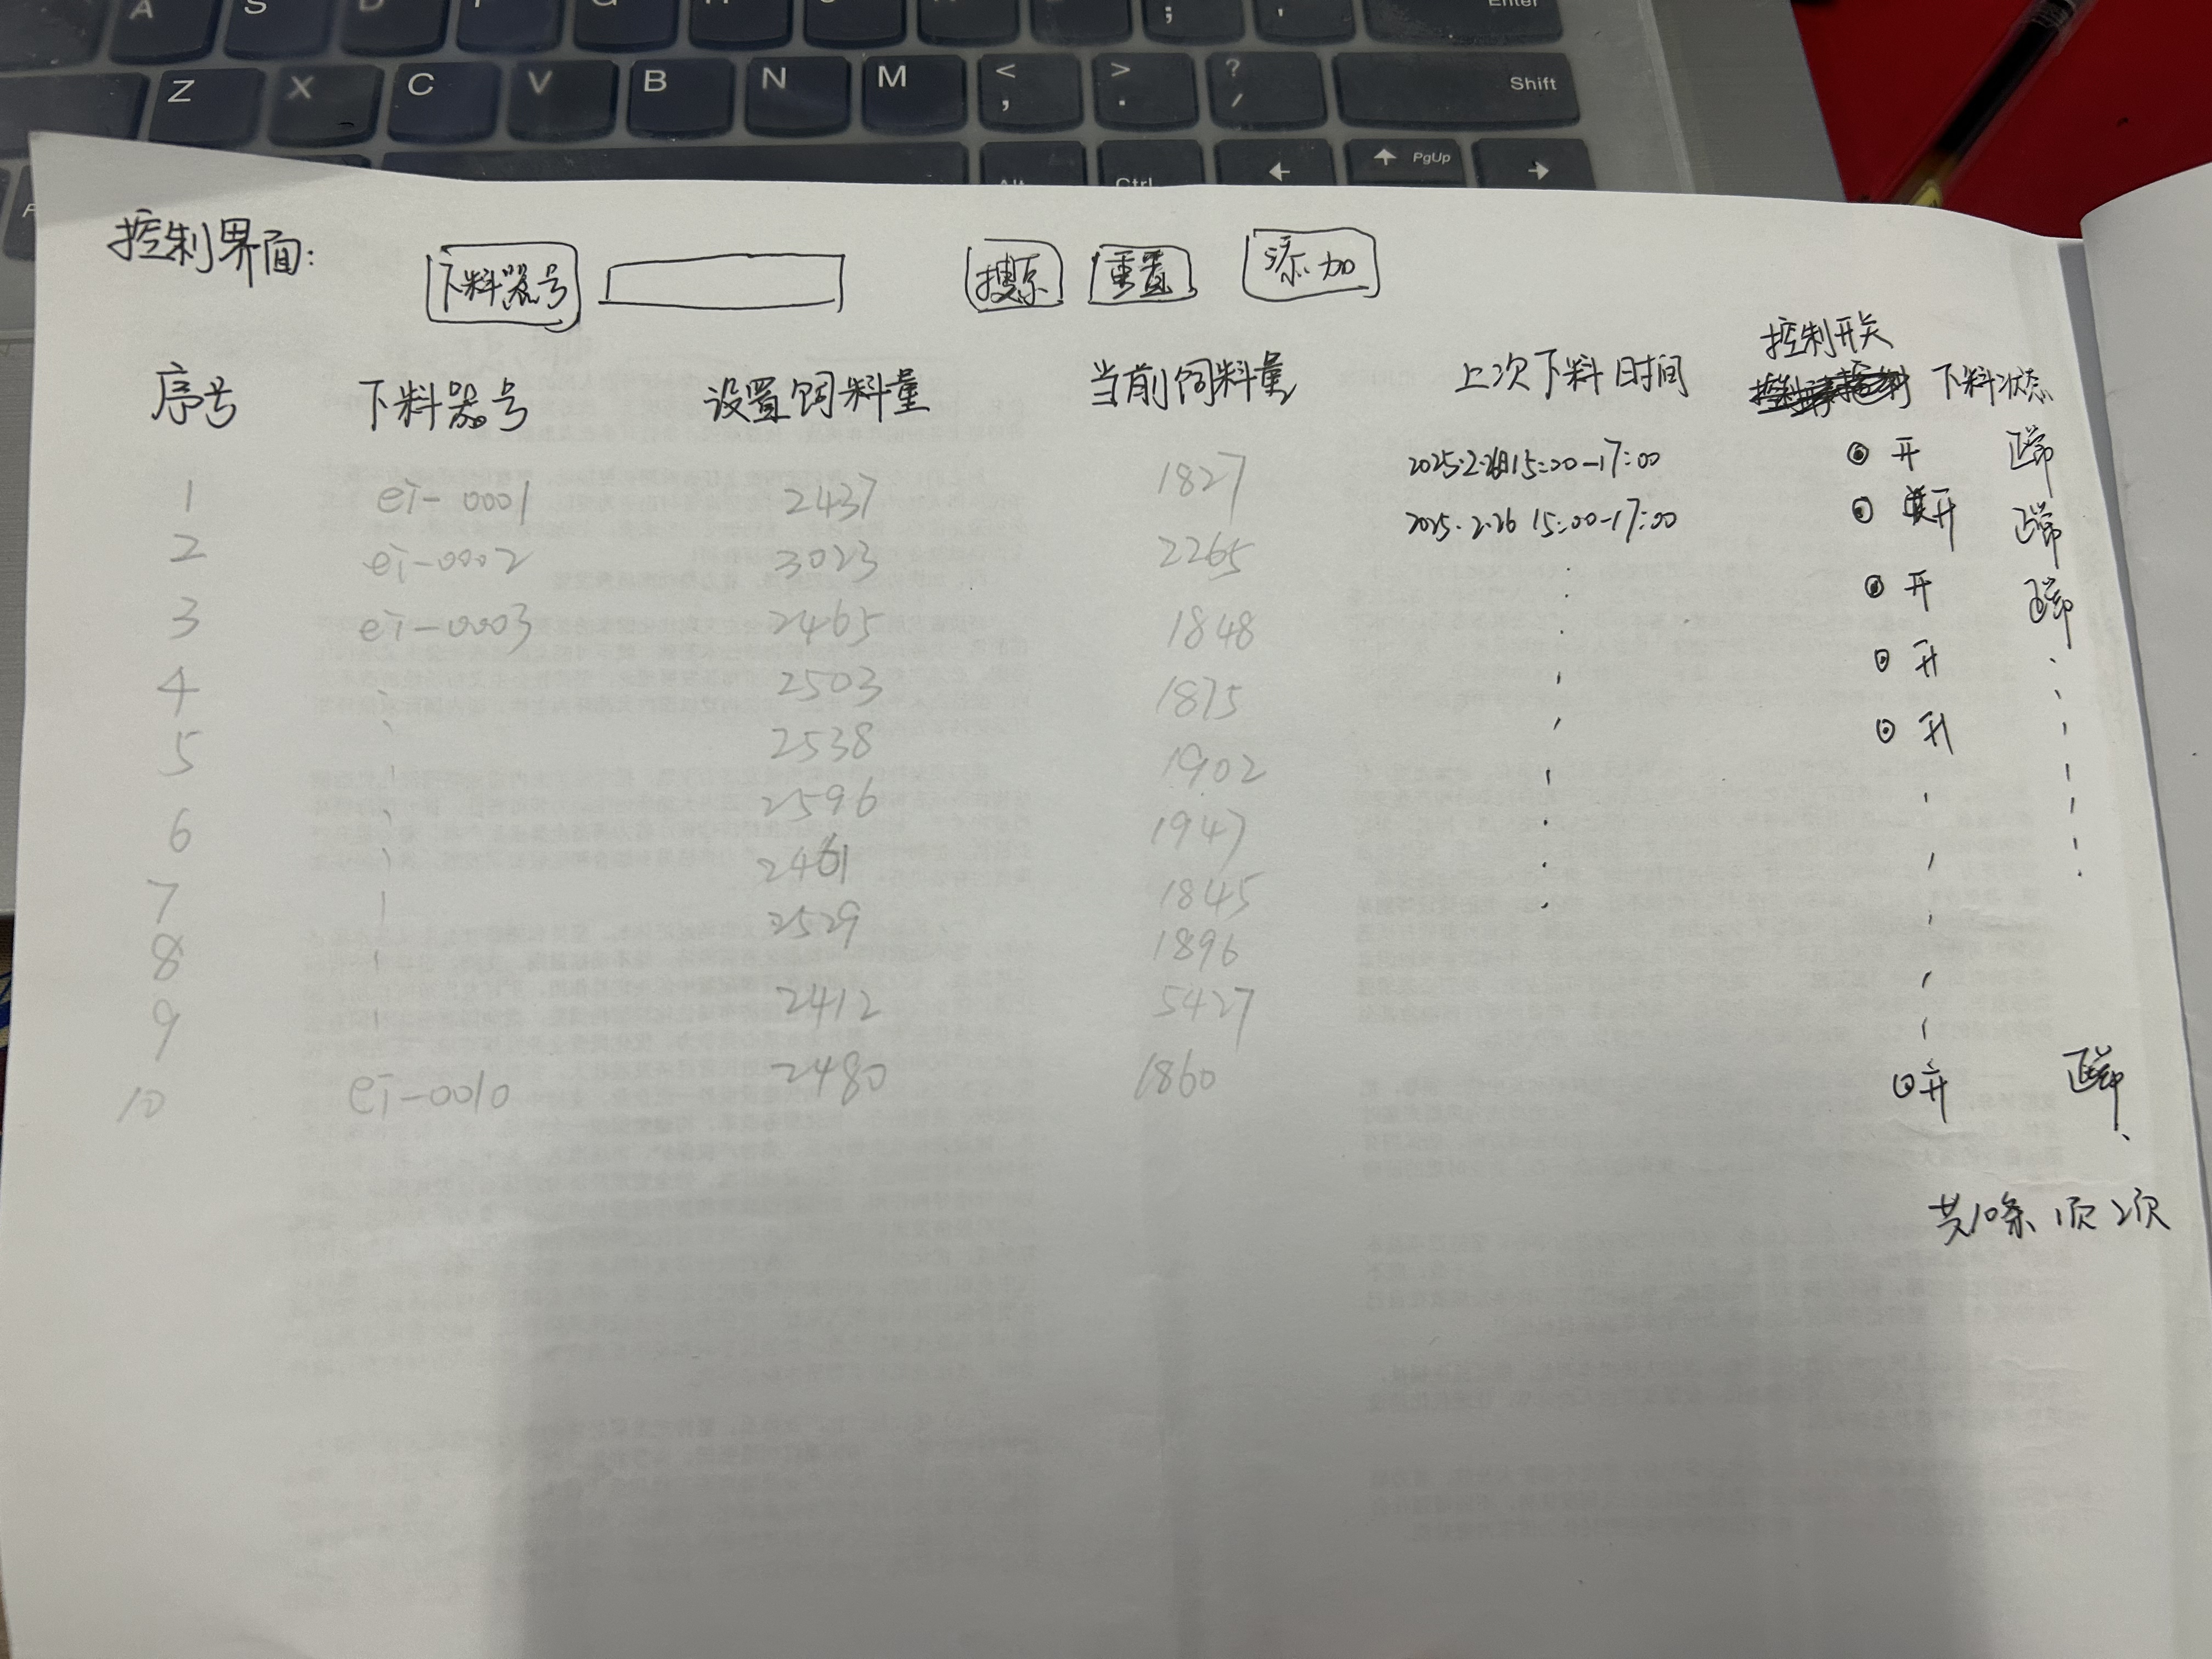 A S D F G H J K L ; ' Enter
Z X C V B N M < , > . ? / Shift
Alt Ctrl ← ↑ PgUp →
控制界面:
下料器号 搜索 重置 添加
控制开关
序号 下料器号 设置饲料量 当前饲料量 上次下料时间 下料状态
1 ei-0001 2437 1827 2025.2.26日15:00-17:00 开 正常
2 ei-0002 3023 2265 2025.2.26 15:00-17:00 开 正常
3 ei-0003 2465 1848 开 正常
4 2503 1875 开
5 2538 1902 开
6 2596 1947
7 2461 1845
8 2529 1896
9 2412 5427
10 ei-0010 2480 1860 开 正常
共10条 1页 2页